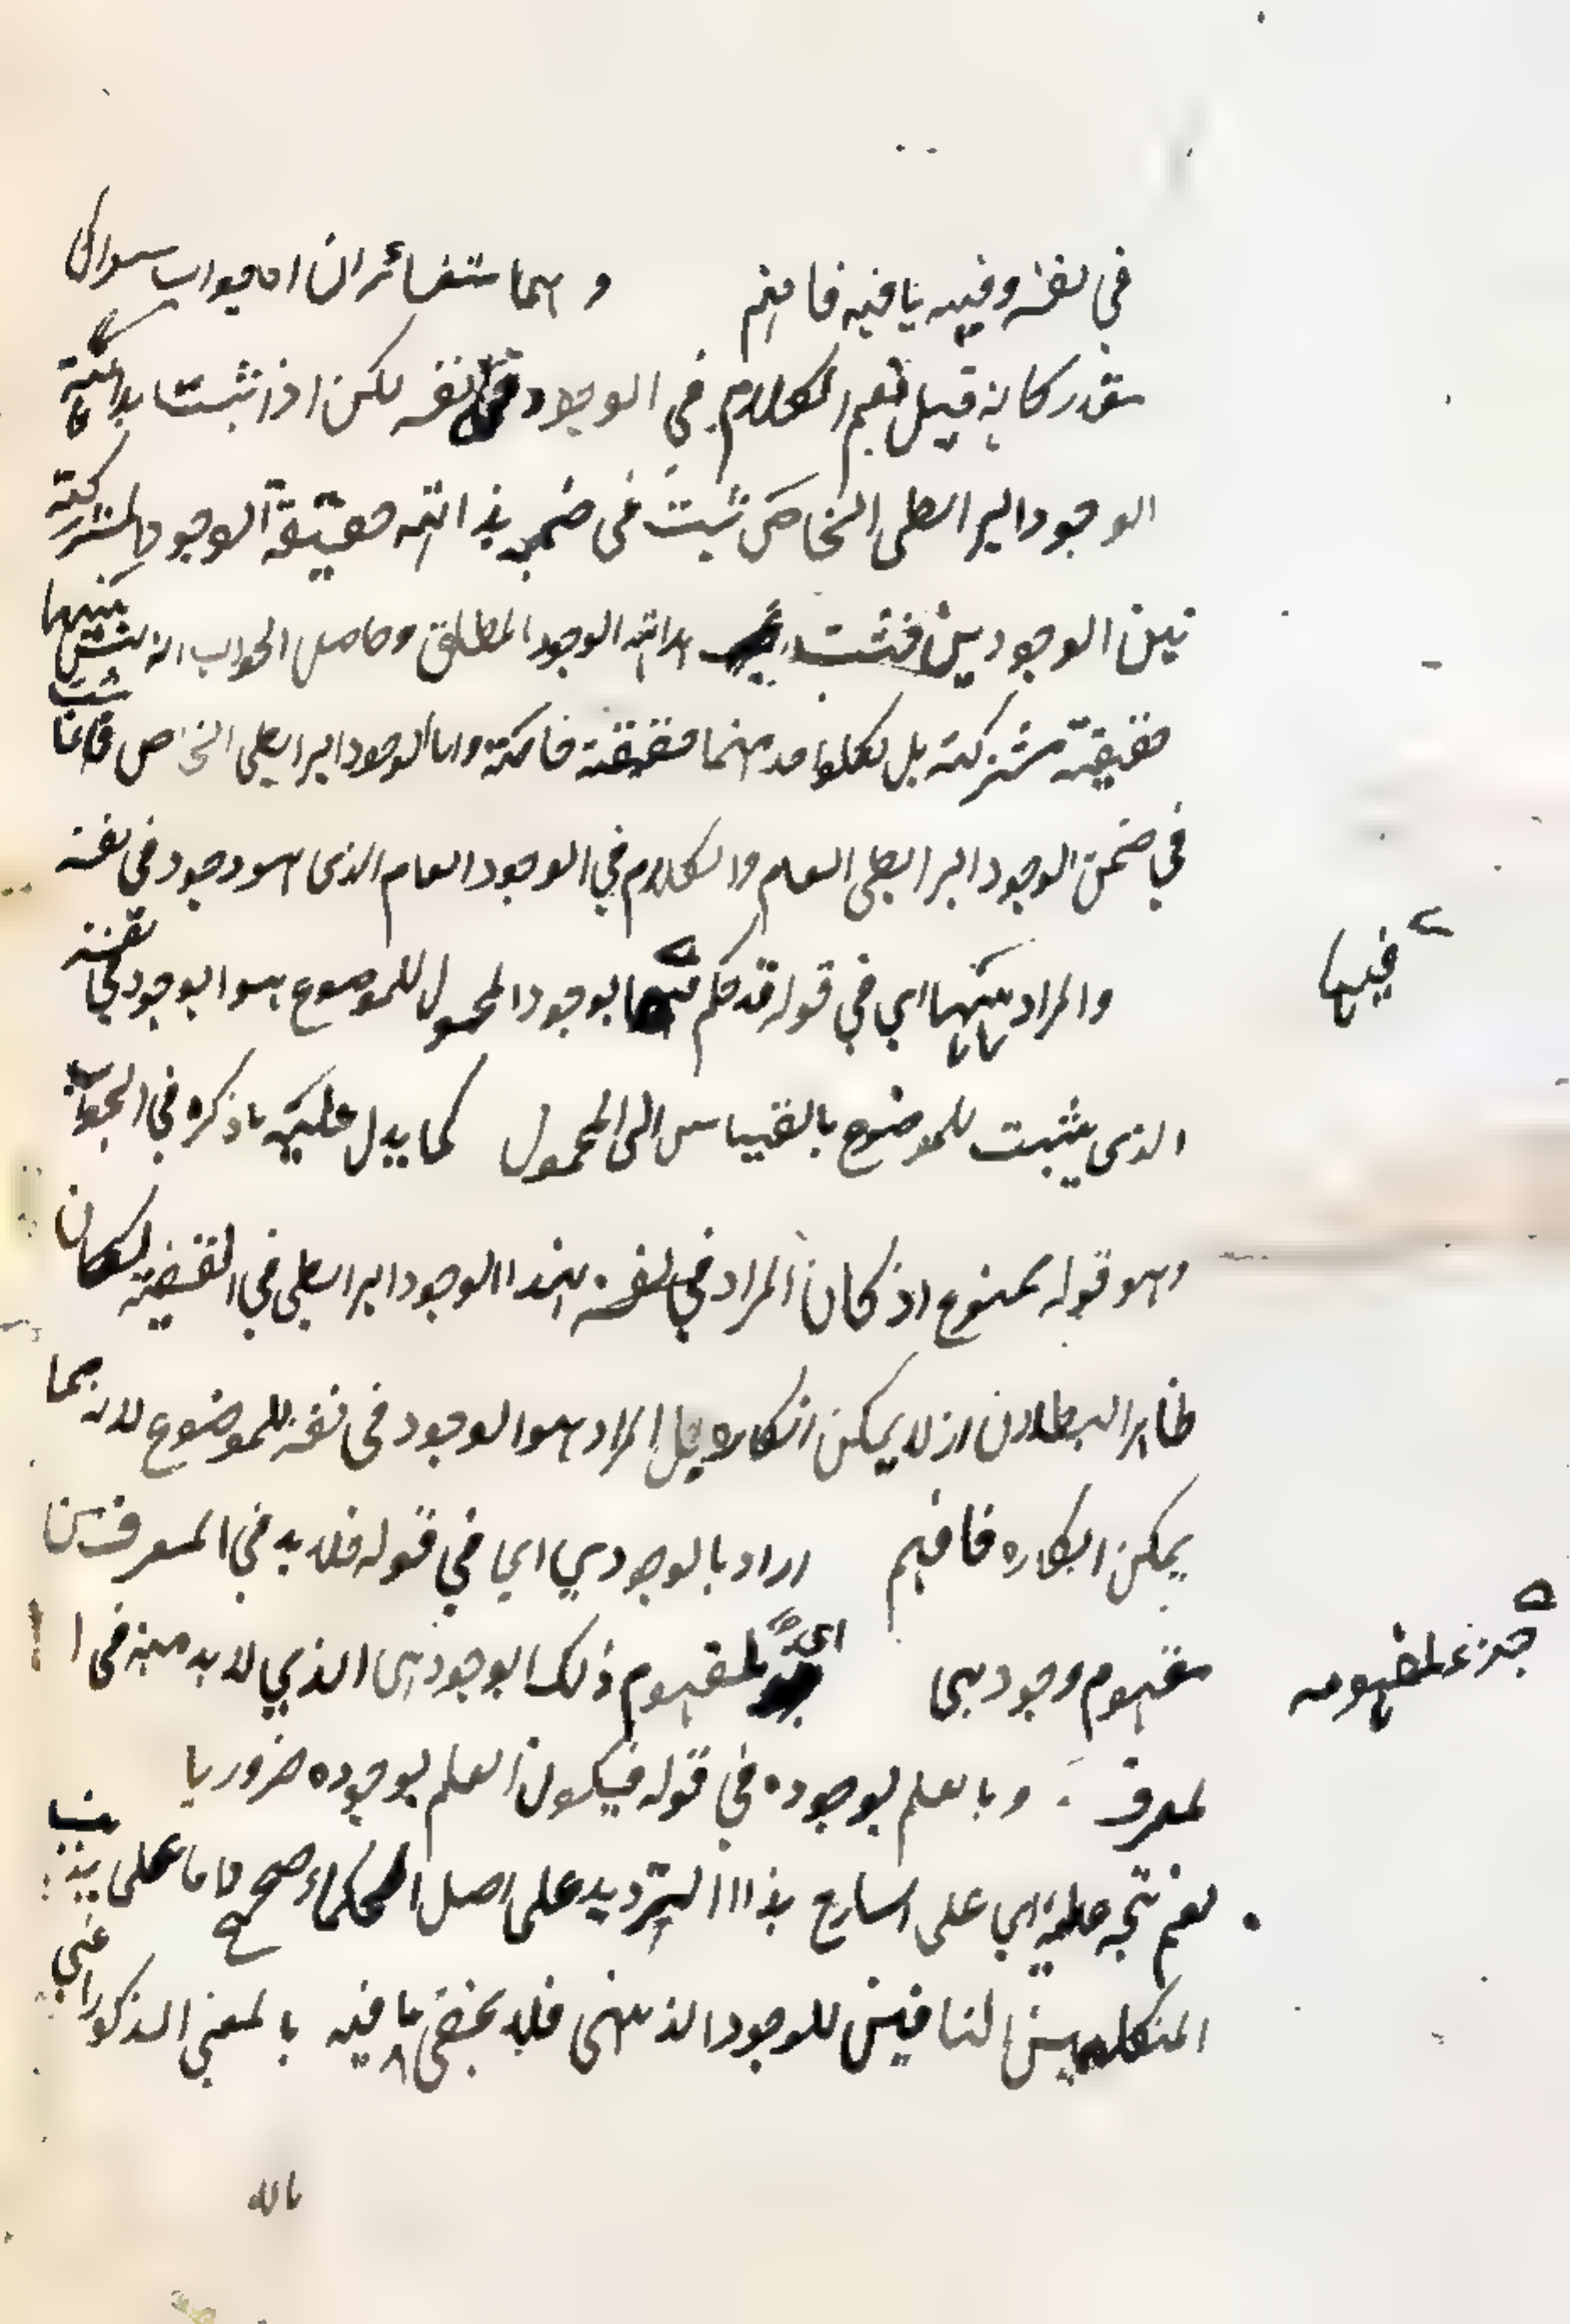 في نفسه وفيه ما فيه فافهم وهما متغائران اه جواب سوال
مقدر كانه قيل نعم الكلام في الوجود في نفسه لكن اذا ثبت بداهة
الوجود الرابطي الخاص ثبت في ضمن بداهته حقيقة الوجود المشتركة
بين الوجودين فثبت بداهة الوجود المطلق وحاصل الجواب انه ليس بينهما
حقيقة مشتركة بل لكل واحد منهما حقيقة واما الوجود الرابطي الخاص فانما ثبت
في ضمن الوجود الرابطي العام والكلام في الوجود العام الذي هو وجود في نفسه
والمراد ههنا اي في قوله قد حكم فيها بوجود المحمول للموضوع هو الوجود في نفسه
فيها
الذي يثبت للموضوع بالقياس الى المحمول كما يدل عليه ما ذكره في الجواب
وهو قوله ممنوع اذ كان المراد في نفسه هذا الوجود الرابطي في القضية لكان
ظاهر البطلان اذ لا يمكن انكاره بل المراد هو الوجود في نفسه للموضوع لانه مما
يمكن انكاره فافهم اراد بالوجودي اي في قوله فلا بد في المعرف من
مفهوم وجودي اي جزء لمفهوم ذلك الوجودي الذي لا بد منه في ا
جزء لمفهومه
لمعرف وبالعلم بوجوده في قوله فيكون العلم بوجوده ضروريا
نعم يتجه عليه اي على الشارح هذا الترديد على اصل الحكماء صحيح واما على مذهب
المتكلمين النافين للوجود الذهني فلا يخفى ما فيه بالمعنى المذكور اعني
بالله